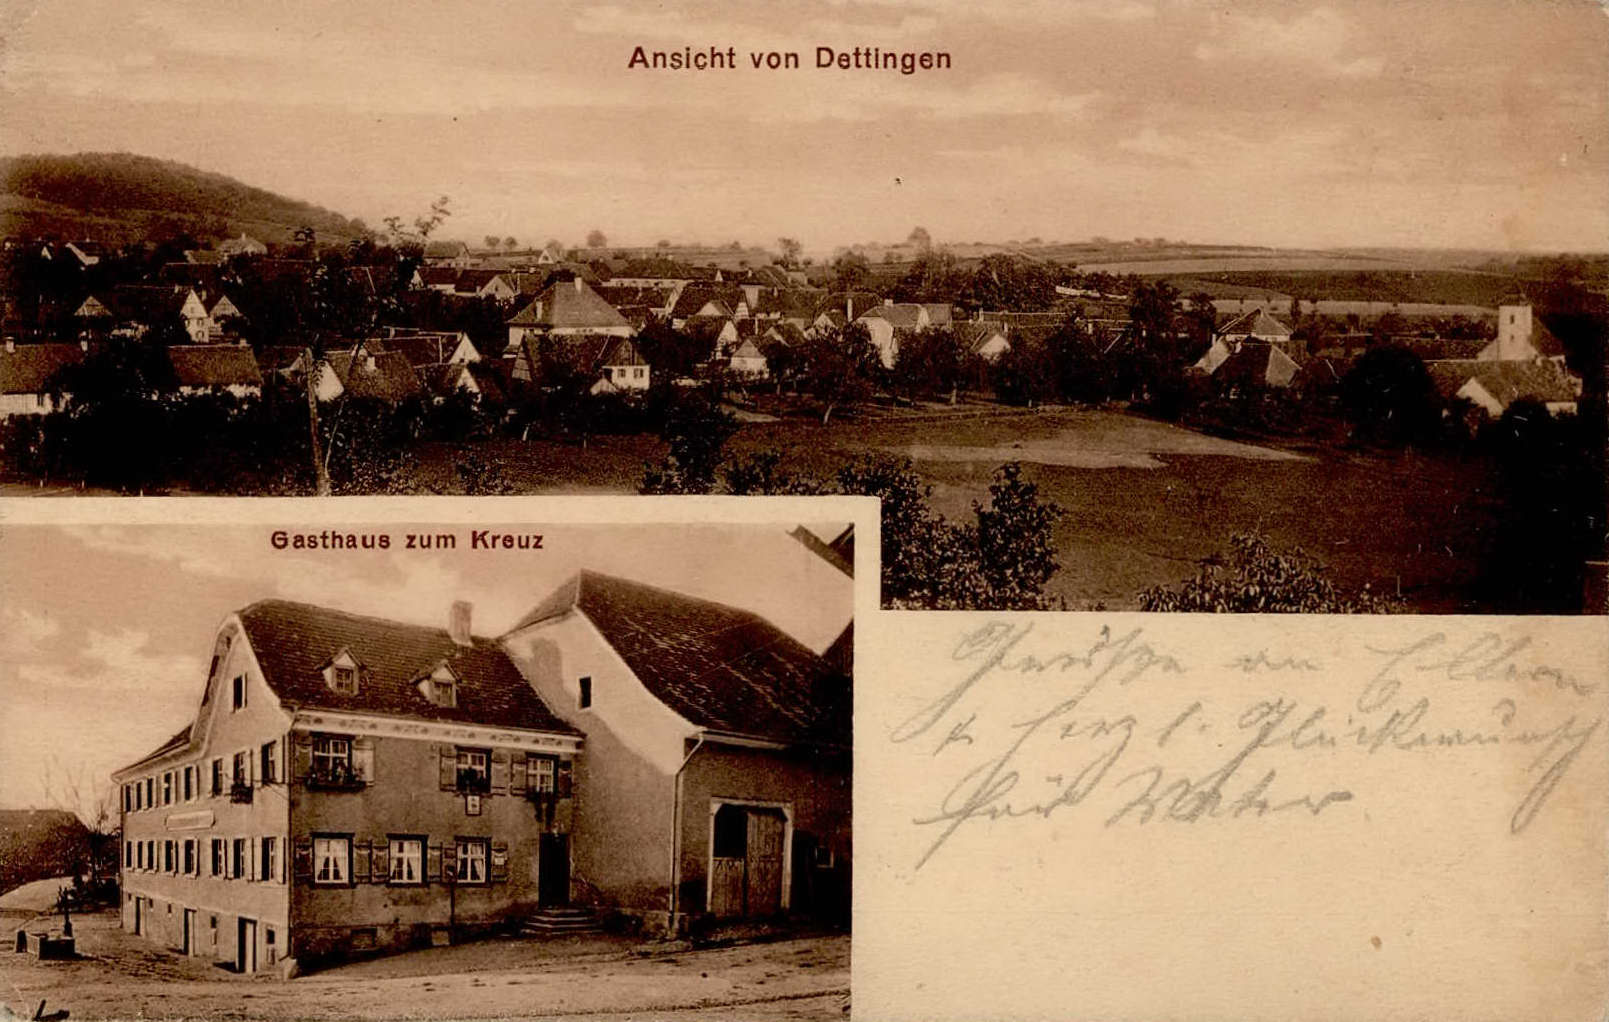 Ansicht von Dettingen
Gasthaus zum Kreuz
Grüsse an Eltern
& herzl. Glückwunsch
für Vater.